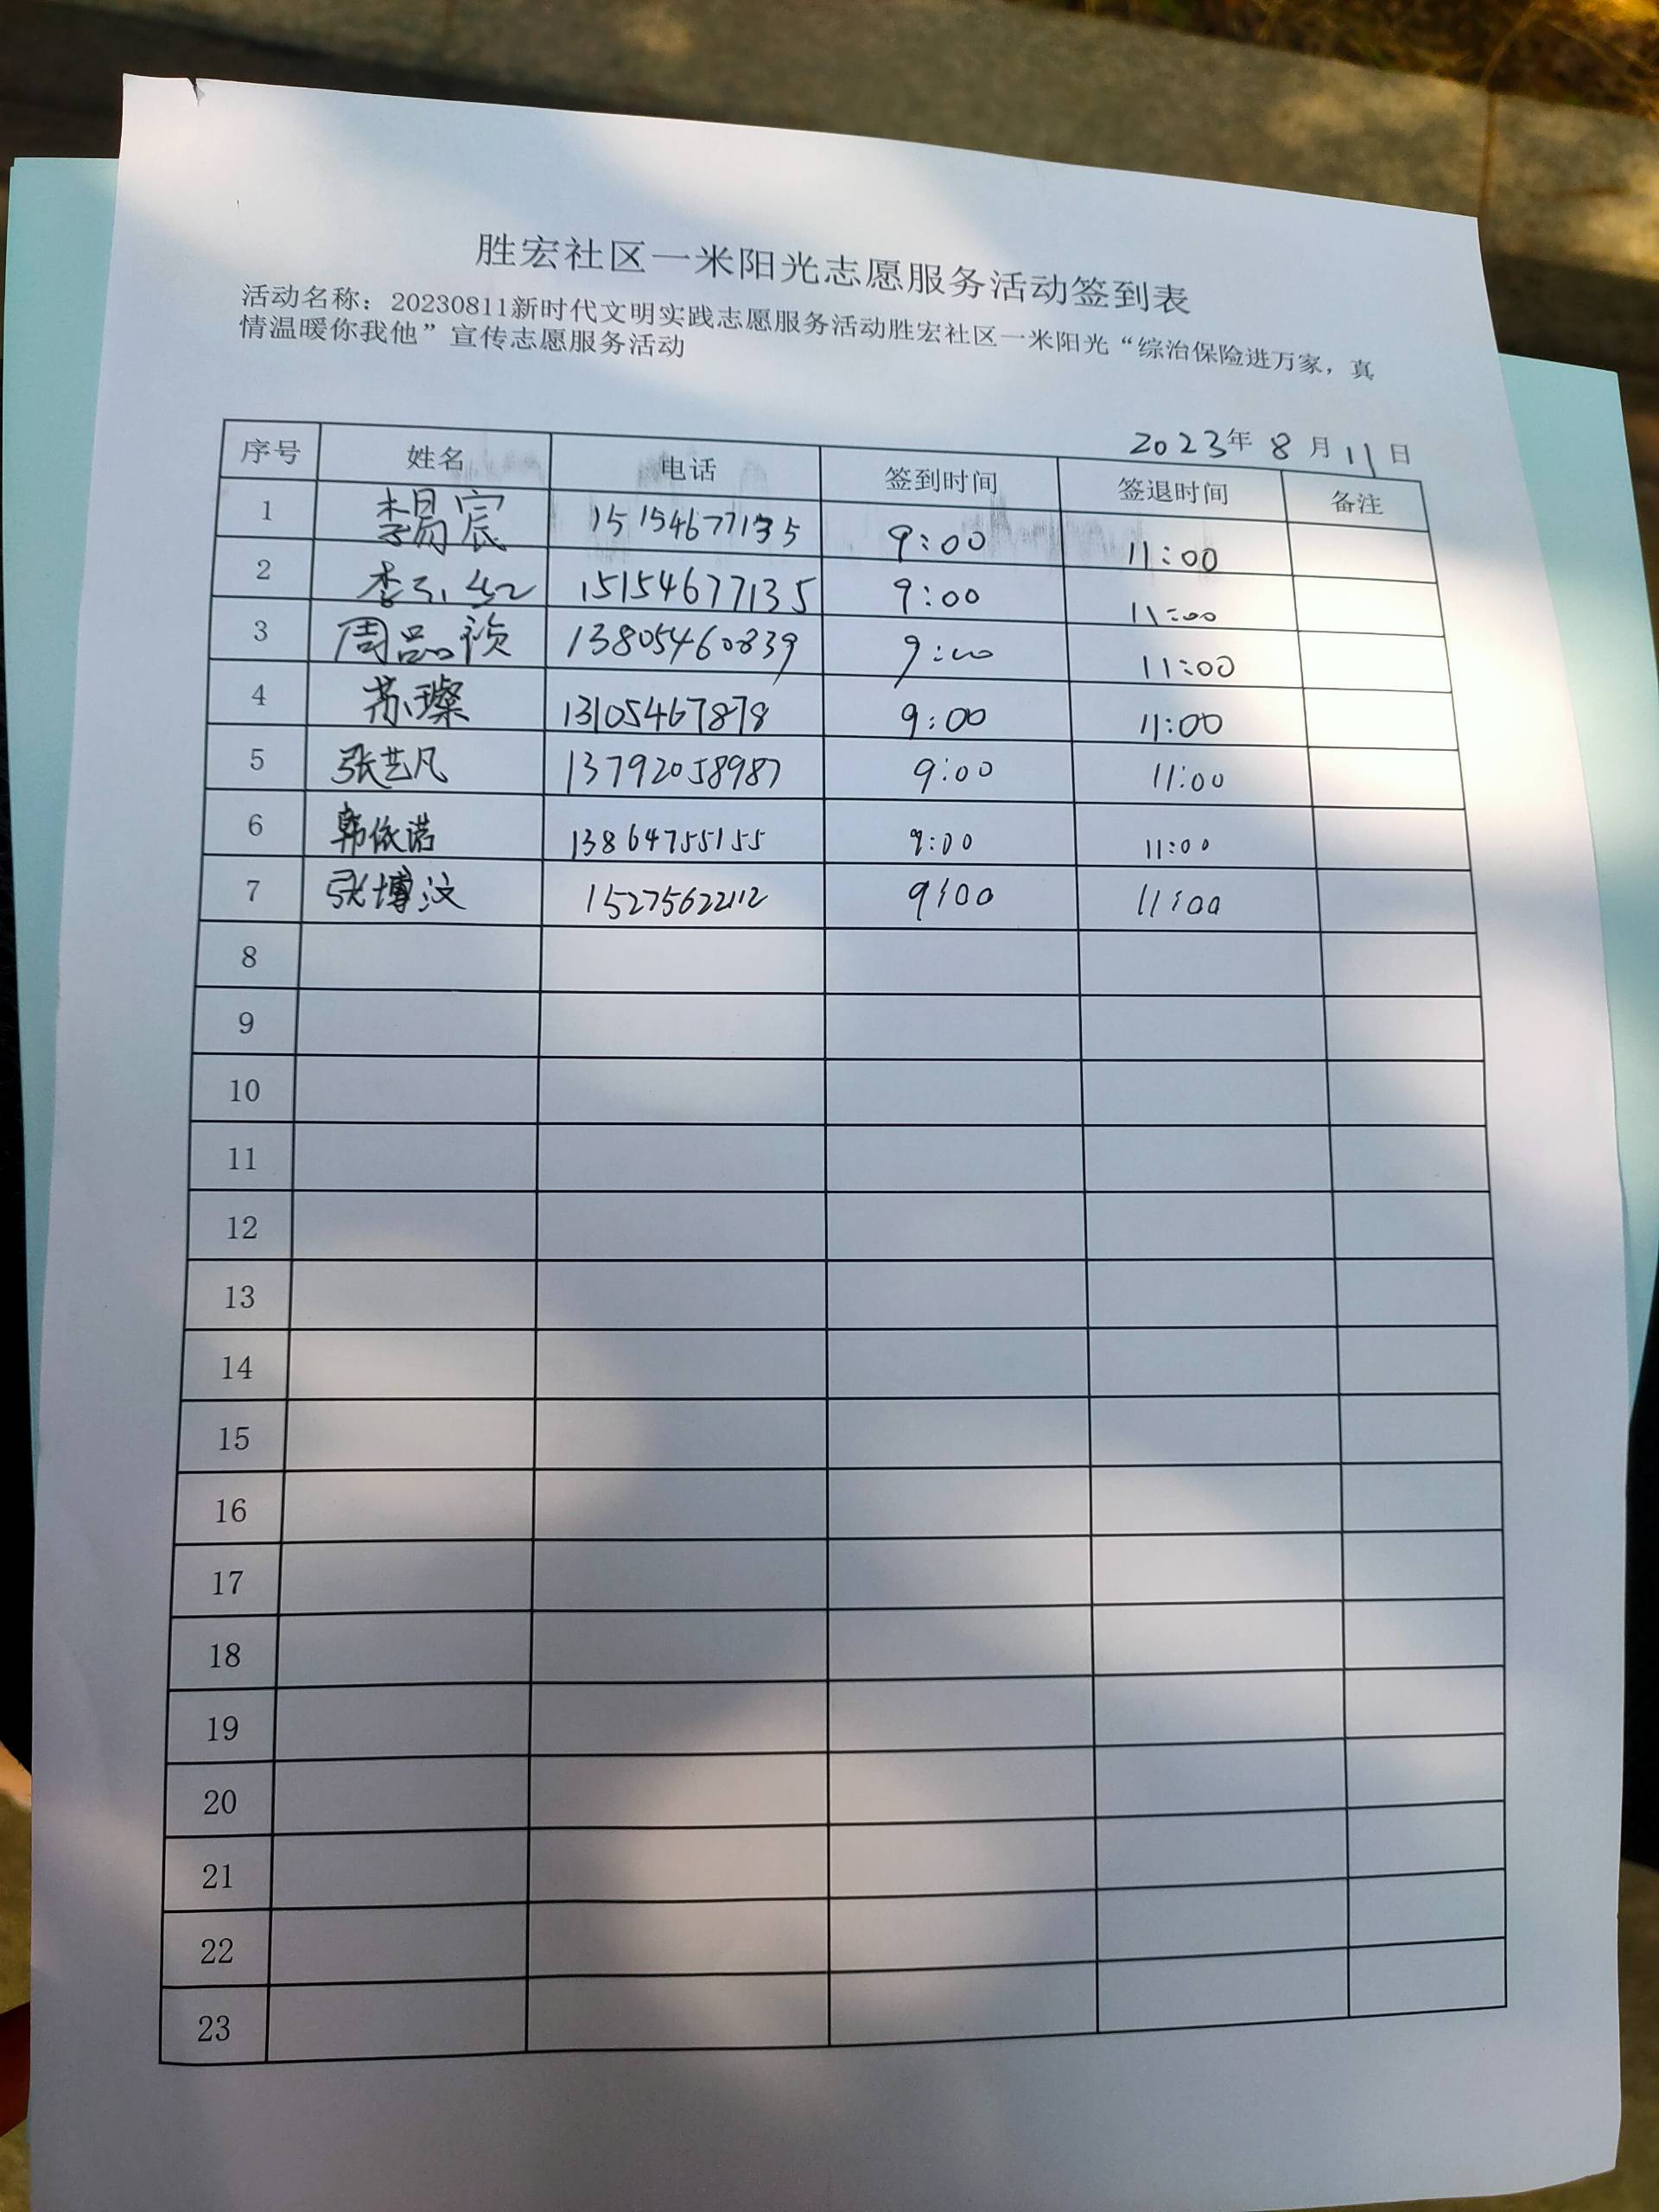 胜宏社区一米阳光志愿服务活动签到表
活动名称：20230811新时代文明实践志愿服务活动胜宏社区一米阳光“综治保险进万家，真
情温暖你我他”宣传志愿服务活动
2023年 8 月 11 日
序号 姓名 电话 签到时间 签退时间 备注
1 李易宸 15154677135 9:00 11:00
2 15154677135 9:00 11:00
3 周品祯 13805460839 9:00 11:00
4 苏璨 13105467878 9:00 11:00
5 张艺凡 13792058987 9:00 11:00
6 韩依诺 13864755155 9:00 11:00
7 张博汶 15275622112 9:00 11:00
8
9
10
11
12
13
14
15
16
17
18
19
20
21
22
23